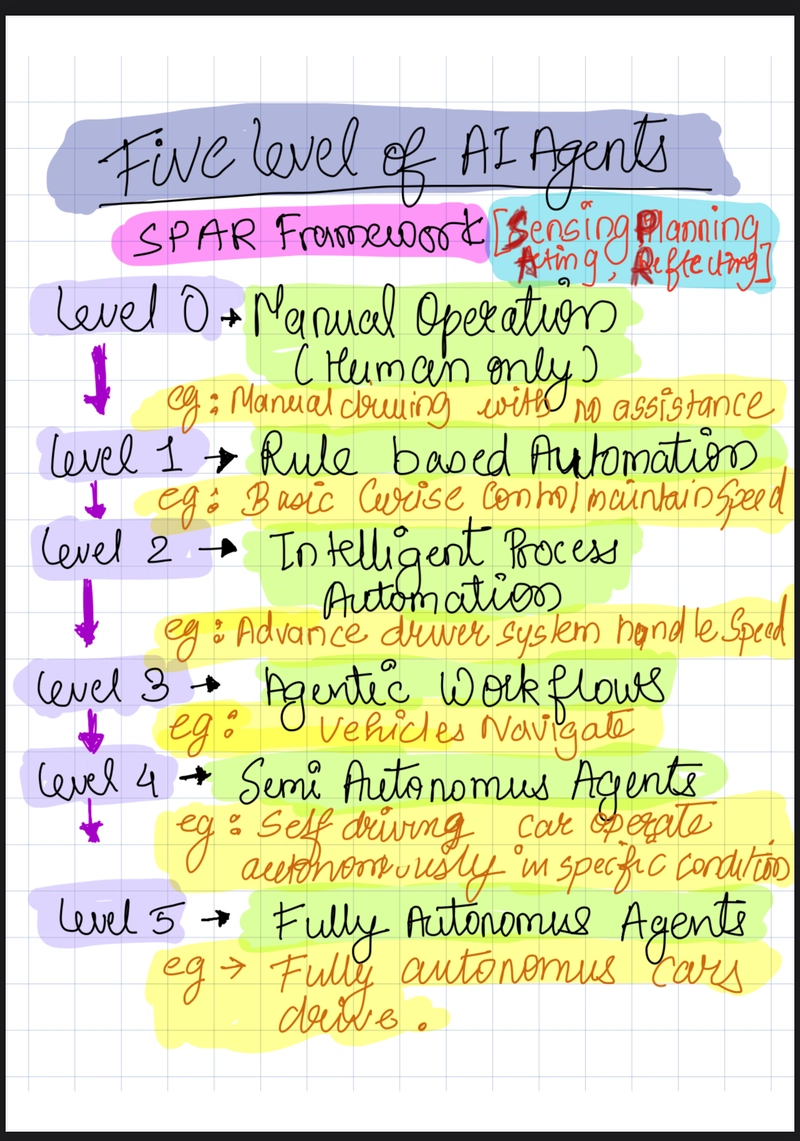 Five level of AI Agents
SPAR Framework [Sensing Planning
Acting, Reflecting]
Level 0 → Manual Operation
(Human only)
eg: Manual driving with no assistance
level 1 → Rule based Automation
eg: Basic Curise Control maintain Speed
level 2 → Intelligent Process
Automation
eg: Advance driver system handle Speed
level 3 → Agentic Workflows
eg: Vehicles Navigate
level 4 → Semi Autonomus Agents
eg: Self driving car operate
autonomously in specific condition
level 5 → Fully Autonomus Agents
eg → Fully autonomus cars
drive.